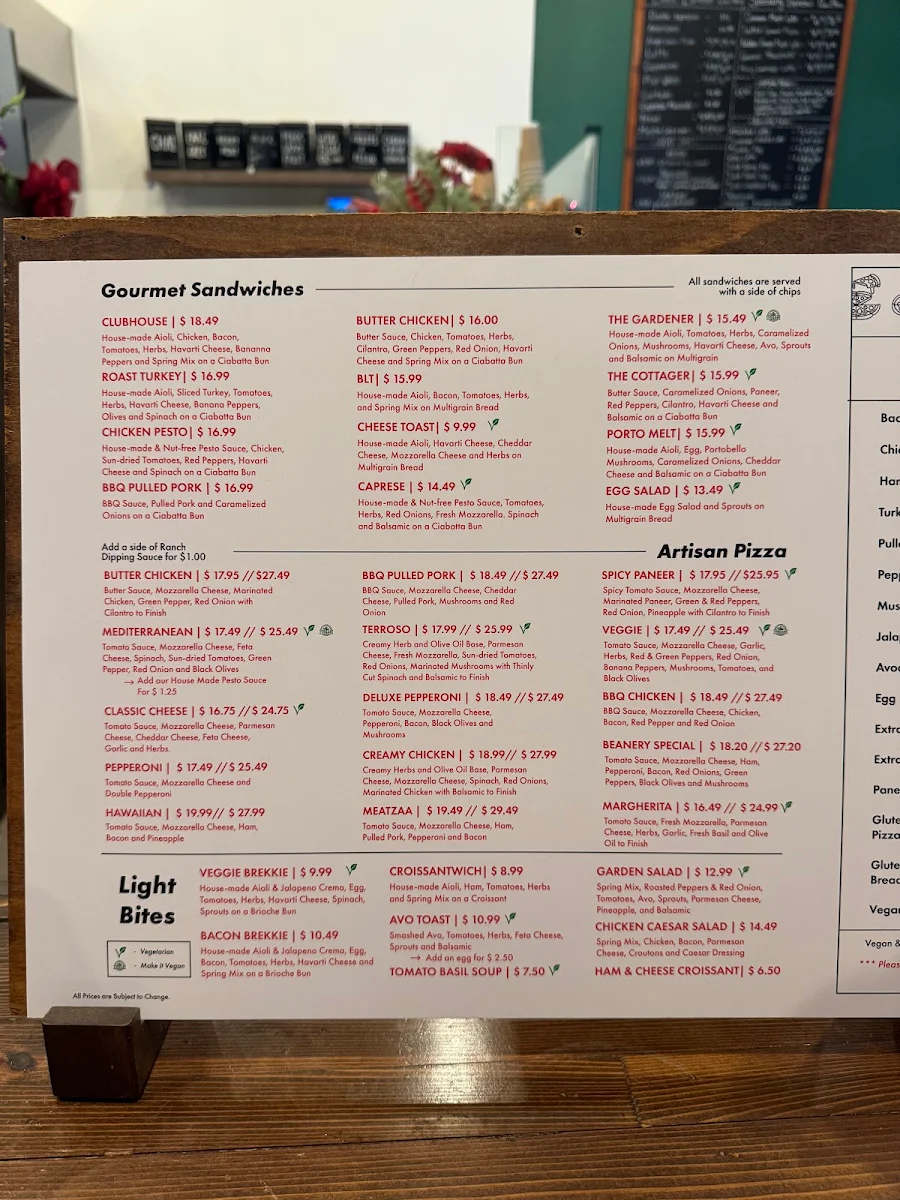 Gourmet Sandwiches
All sandwiches are served
with a side of chips
CLUBHOUSE | $ 18.49
House-made Aioli, Chicken, Bacon,
Tomatoes, Herbs, Havarti Cheese, Bananna
Peppers and Spring Mix on a Ciabatta Bun
ROAST TURKEY| $ 16.99
House-made Aioli, Sliced Turkey, Tomatoes,
Herbs, Havarti Cheese, Banana Peppers,
Olives and Spinach on a Ciabatta Bun
CHICKEN PESTO| $ 16.99
House-made & Nut-free Pesto Sauce, Chicken,
Sun-dried Tomatoes, Red Peppers, Havarti
Cheese and Spinach on a Ciabatta Bun
BBQ PULLED PORK | $ 16.99
BBQ Sauce, Pulled Pork and Caramelized
Onions on a Ciabatta Bun
BUTTER CHICKEN| $ 16.00
Butter Sauce, Chicken, Tomatoes, Herbs,
Cilantro, Green Peppers, Red Onion, Havarti
Cheese and Spring Mix on a Ciabatta Bun
BLT| $ 15.99
House-made Aioli, Bacon, Tomatoes, Herbs,
and Spring Mix on Multigrain Bread
CHEESE TOAST| $ 9.99
House-made Aioli, Havarti Cheese, Cheddar
Cheese, Mozzarella Cheese and Herbs on
Multigrain Bread
CAPRESE | $ 14.49
House-made & Nut-free Pesto Sauce, Tomatoes,
Herbs, Red Onions, Fresh Mozzarella. Spinach
and Balsamic on a Ciabatta Bun
THE GARDENER | $ 15.49
House-made Aioli, Tomatoes, Herbs, Caramelized
Onions, Mushrooms, Havarti Cheese, Avo, Sprouts
and Balsamic on Multigrain
THE COTTAGER| $ 15.99
Butter Sauce, Caramelized Onions, Paneer,
Red Peppers, Cilantro, Havarti Cheese and
Balsamic on a Ciabatta Bun
PORTO MELT| $ 15.99
House-made Aioli, Egg, Portobello
Mushrooms, Caramelized Onions, Cheddar
Cheese and Balsamic on a Ciabatta Bun
EGG SALAD | $ 13.49
House-made Egg Salad and Sprouts on
Multigrain Bread
Add a side of Ranch
Dipping Sauce for $1.00
Artisan Pizza
BUTTER CHICKEN | $ 17.95 //$27.49
Butter Sauce, Mozzarella Cheese, Marinated
Chicken, Green Pepper, Red Onion with
Cilantro to Finish
MEDITERRANEAN | $ 17.49 // $ 25.49
Tomato Sauce, Mozzarella Cheese, Feta
Cheese, Spinach, Sun-dried Tomatoes, Green
Pepper, Red Onion and Black Olives
→ Add our House Made Pesto Sauce
For $ 1.25
CLASSIC CHEESE | $ 16.75 //$ 24.75
Tomato Sauce, Mozzarella Cheese, Parmesan
Cheese, Cheddar Cheese, Feta Cheese,
Garlic and Herbs.
PEPPERONI | $ 17.49 // $ 25.49
Tomato Sauce, Mozzarella Cheese and
Double Pepperoni
HAWAIIAN | $ 19.99// $ 27.99
Tomato Sauce, Mozzarella Cheese, Ham,
Bacon and Pineapple
BBQ PULLED PORK | $ 18.49 // $ 27.49
BBQ Sauce, Mozzarella Cheese, Cheddar
Cheese, Pulled Pork, Mushrooms and Red
Onion
TERROSO | $ 17.99 // $ 25.99
Creamy Herb and Olive Oil Base, Parmesan
Cheese, Fresh Mozzarella, Sun-dried Tomatoes,
Red Onions, Marinated Mushrooms with Thinly
Cut Spinach and Balsamic to Finish
DELUXE PEPPERONI | $ 18.49 //$ 27.49
Tomato Sauce, Mozzarella Cheese,
Pepperoni, Bacon, Black Olives and
Mushrooms
CREAMY CHICKEN | $ 18.99// $ 27.99
Creamy Herbs and Olive Oil Base, Parmesan
Cheese, Mozzarella Cheese, Spinach, Red Onions,
Marinated Chicken with Balsamic to Finish
MEATZAA | $ 19.49 // $ 29.49
Tomato Sauce, Mozzarella Cheese, Ham,
Pulled Pork, Pepperoni and Bacon
SPICY PANEER | $ 17.95 //$25.95
Spicy Tomato Sauce, Mozzarella Cheese,
Marinated Paneer, Green & Red Peppers,
Red Onion, Pineapple with Cilantro to Finish
VEGGIE | $ 17.49 // $ 25.49
Tomato Sauce, Mozzarella Cheese, Garlic,
Herbs, Red & Green Peppers, Red Onion,
Banana Peppers, Mushrooms, Tomatoes, and
Black Olives
BBQ CHICKEN | $ 18.49 //$ 27.49
BBQ Sauce, Mozzarella Cheese, Chicken,
Bacon, Red Pepper and Red Onion
BEANERY SPECIAL | $ 18.20 //$ 27.20
Tomato Sauce, Mozzarella Cheese, Ham,
Pepperoni, Bacon, Red Onions, Green
Peppers, Black Olives and Mushrooms
MARGHERITA | $ 16.49 // $ 24.99
Tomato Sauce, Fresh Mozzarella, Parmesan
Cheese, Herbs, Garlic, Fresh Basil and Olive
Oil to Finish
Light
Bites
- Vegetarian
- Make it Vegan
VEGGIE BREKKIE | $ 9.99
House-made Aioli & Jalapeno Crema, Egg,
Tomatoes, Herbs, Havarti Cheese, Spinach,
Sprouts on a Brioche Bun
BACON BREKKIE | $ 10.49
House-made Aioli & Jalapeno Crema, Egg,
Bacon, Tomatoes, Herbs, Havarti Cheese and
Spring Mix on a Brioche Bun
CROISSANTWICH| $ 8.99
House-made Aioli, Ham, Tomatoes, Herbs
and Spring Mix on a Croissant
AVO TOAST | $ 10.99
Smashed Avo, Tomatoes, Herbs, Feta Cheese,
Sprouts and Balsamic
→ Add an egg for $ 2.50
TOMATO BASIL SOUP | $ 7.50
GARDEN SALAD | $ 12.99
Spring Mix, Roasted Peppers & Red Onion,
Tomatoes, Avo, Sprouts, Parmesan Cheese,
Pineapple, and Balsamic
CHICKEN CAESAR SALAD | $ 14.49
Spring Mix, Chicken, Bacon, Parmesan
Cheese, Croutons and Caesar Dressing
HAM & CHEESE CROISSANT| $ 6.50
All Prices are Subject to Change.
Bac
Chi
Ham
Turk
Pulle
Pepp
Mus
Jala
Avoc
Egg
Extra
Extra
Pane
Glute
Pizza
Glute
Bread
Vegan
Vegan &
*** Pleas